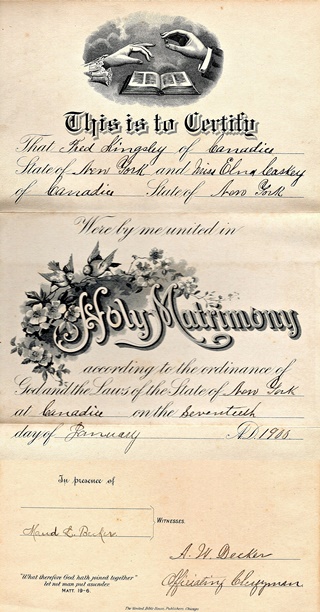 This is to Certify
That Fred Kingsley of Canadice
State of New York and Miss Elna Caskey
of Canadice State of New York
Were by me united in
Holy Matrimony
according to the ordinance of
God and the Laws of the State of New York
at Canadice on the Seventeeth
day of January A.D. 1906
In presence of
Maud E. Becker
WITNESSES.
A. W. Becker
Officiating Clergyman
"What therefore God hath joined together"
let not man put asunder
MATT. 19-6.